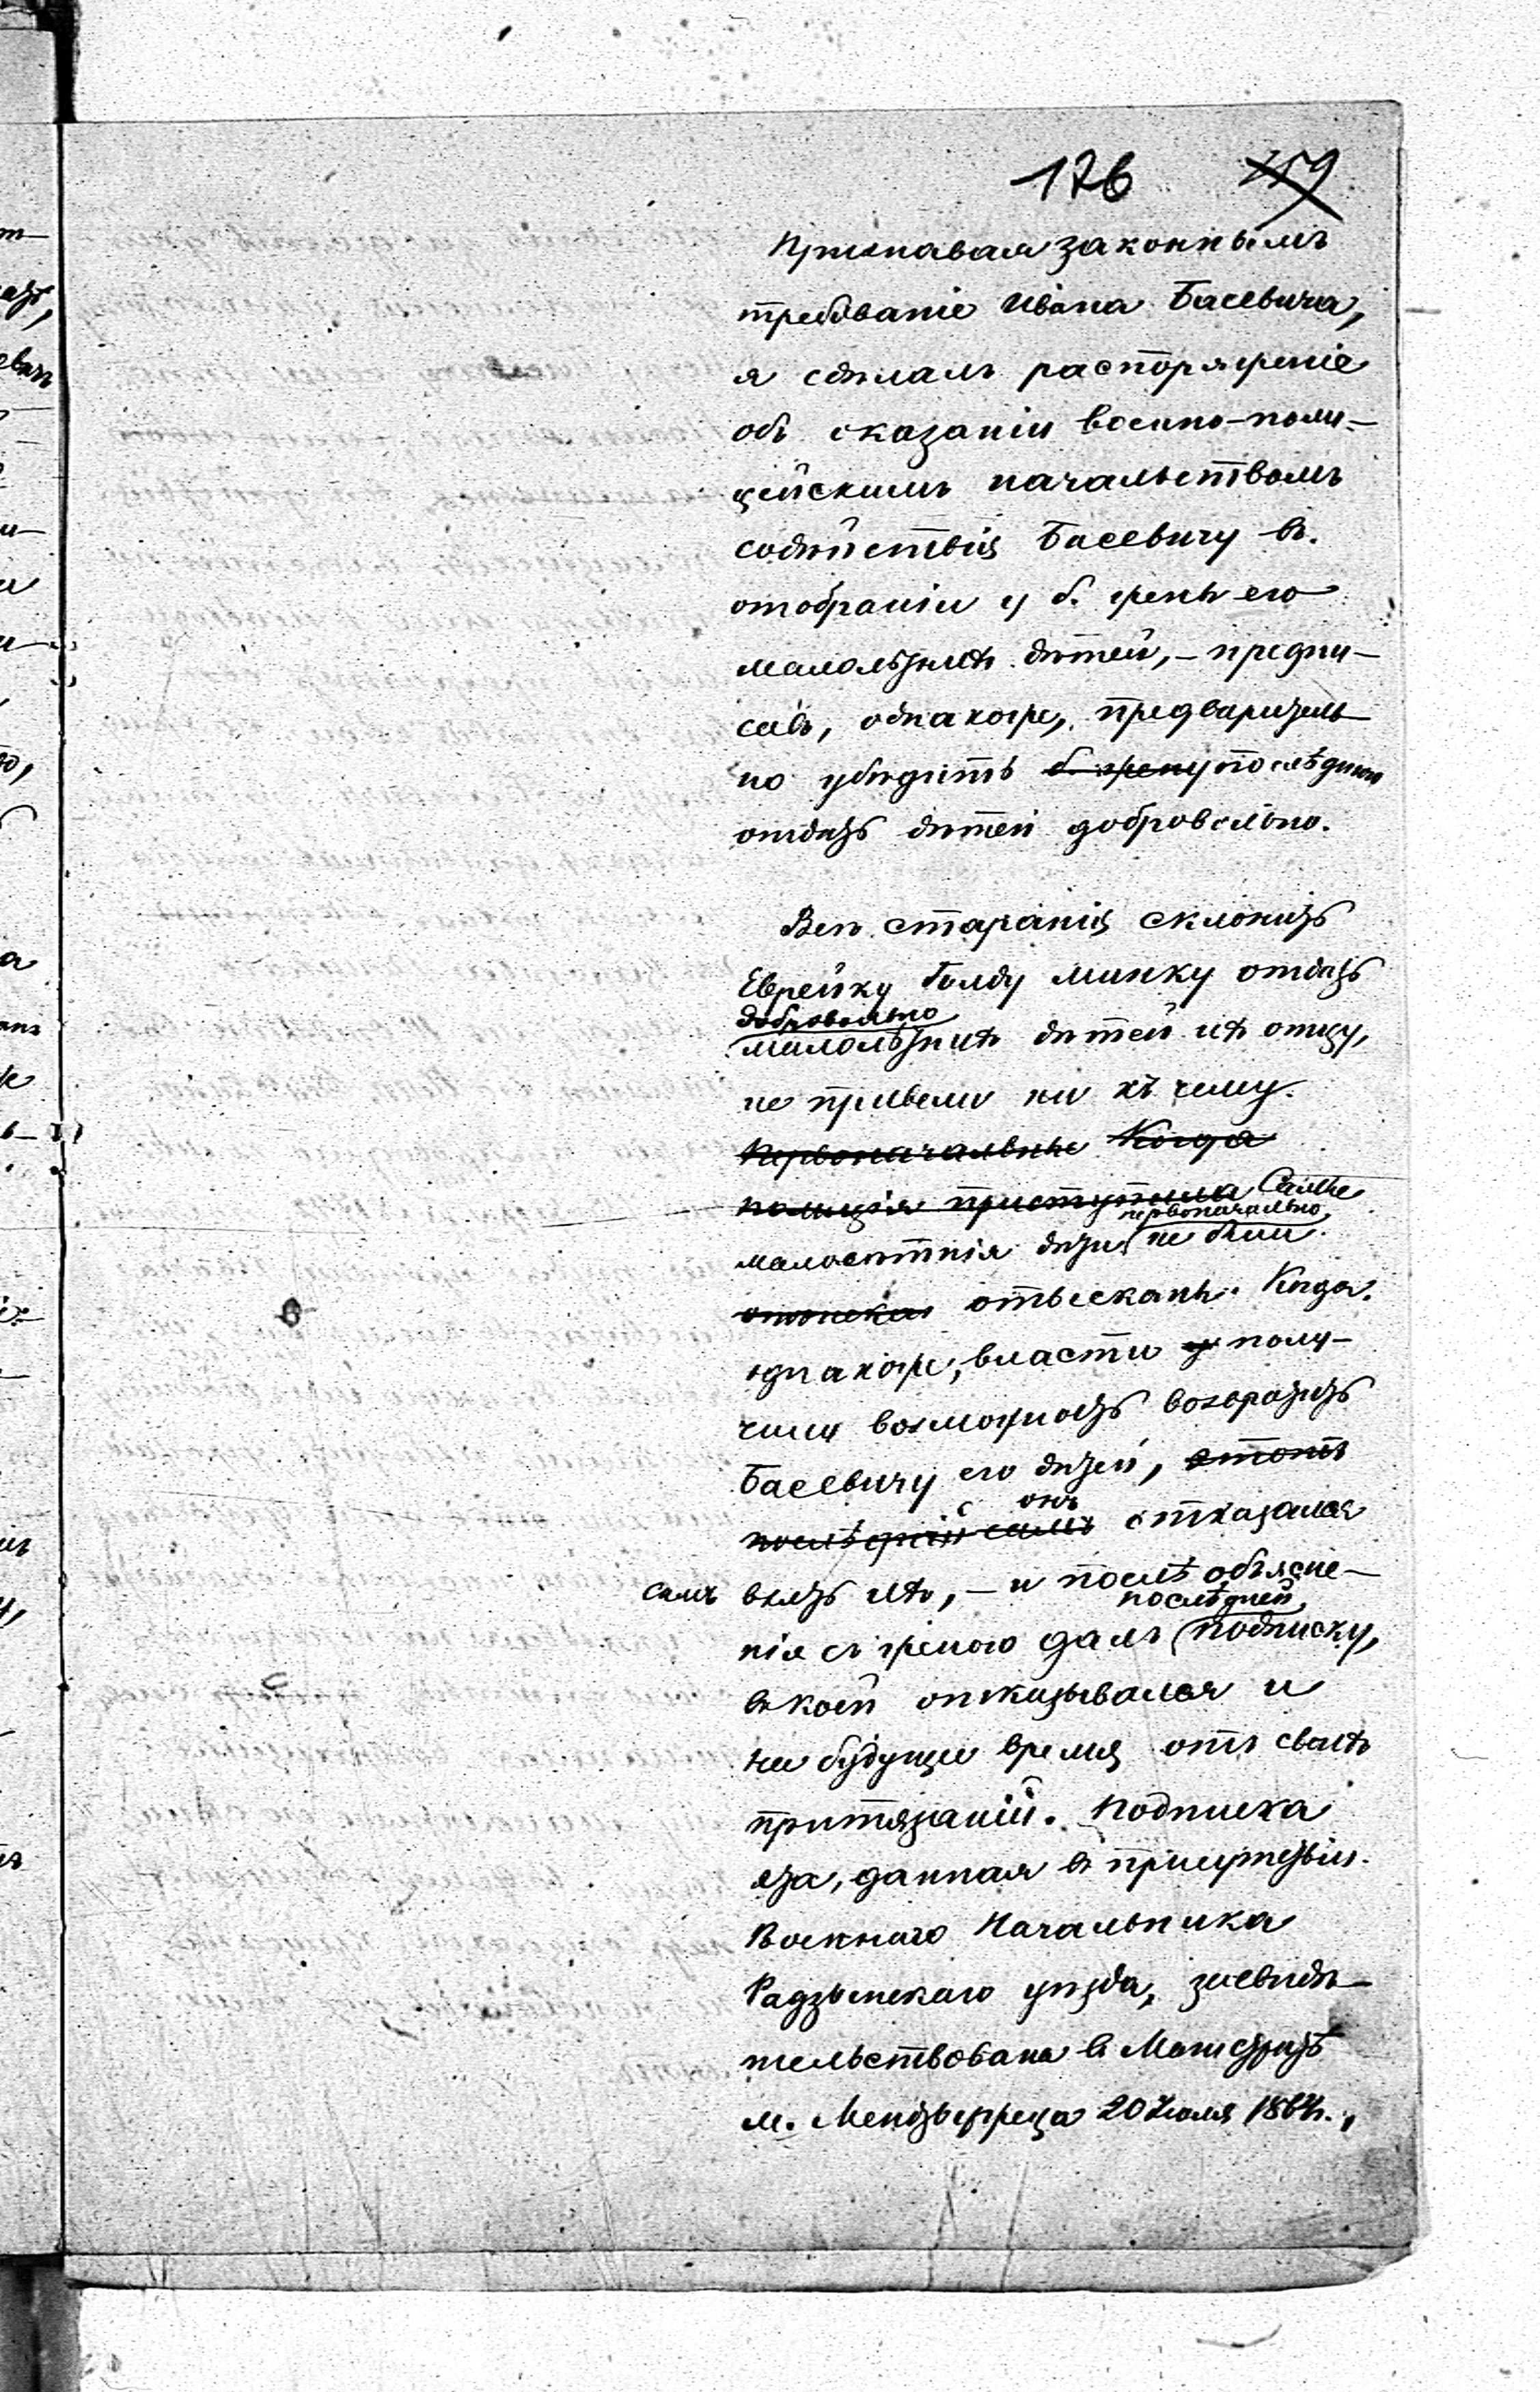 176 159
Признавая законнымъ
требованіе Ивана Басевича,
я сдѣлалъ распоряженіе
объ оказаніи военно-поли-
цейскимъ начальствомъ
содѣйствія Басевичу въ
отобраніи у б. жены его
малолѣтнихъ дѣтей, – предпи-
савъ, однакоже, предваритель
но убѣдить б. жену послѣднюю
отдать дѣтей добровольно.
Всѣ старанія склонить
Еврейку Голду Минку отдать
добровольно
малолѣтнихъ дѣтей ихъ отцу,
не привели ни къ чему.
Первоначально Когда
полиція приступила Самые
первоначально
малолѣтнія дѣти не были
отыскан отысканы. Когда
однакоже, власти у полу-
чили возможность возвратить
Басевичу его дѣтей, этотъ
онъ
послѣдній самъ отказался
самъ взять ихъ, – и послѣ объясне-
послѣдней
нія съ женою далъ подписку,
въ коей отказывался и
на будущее время отъ своихъ
притязаній. Подписка
эта, данная въ присутствіи
Военнаго Начальника
Радзынскаго уѣзда, засвидѣ-
тельствована въ Магистратѣ
м. Мендзыржеца 20 Іюля 1864г.,